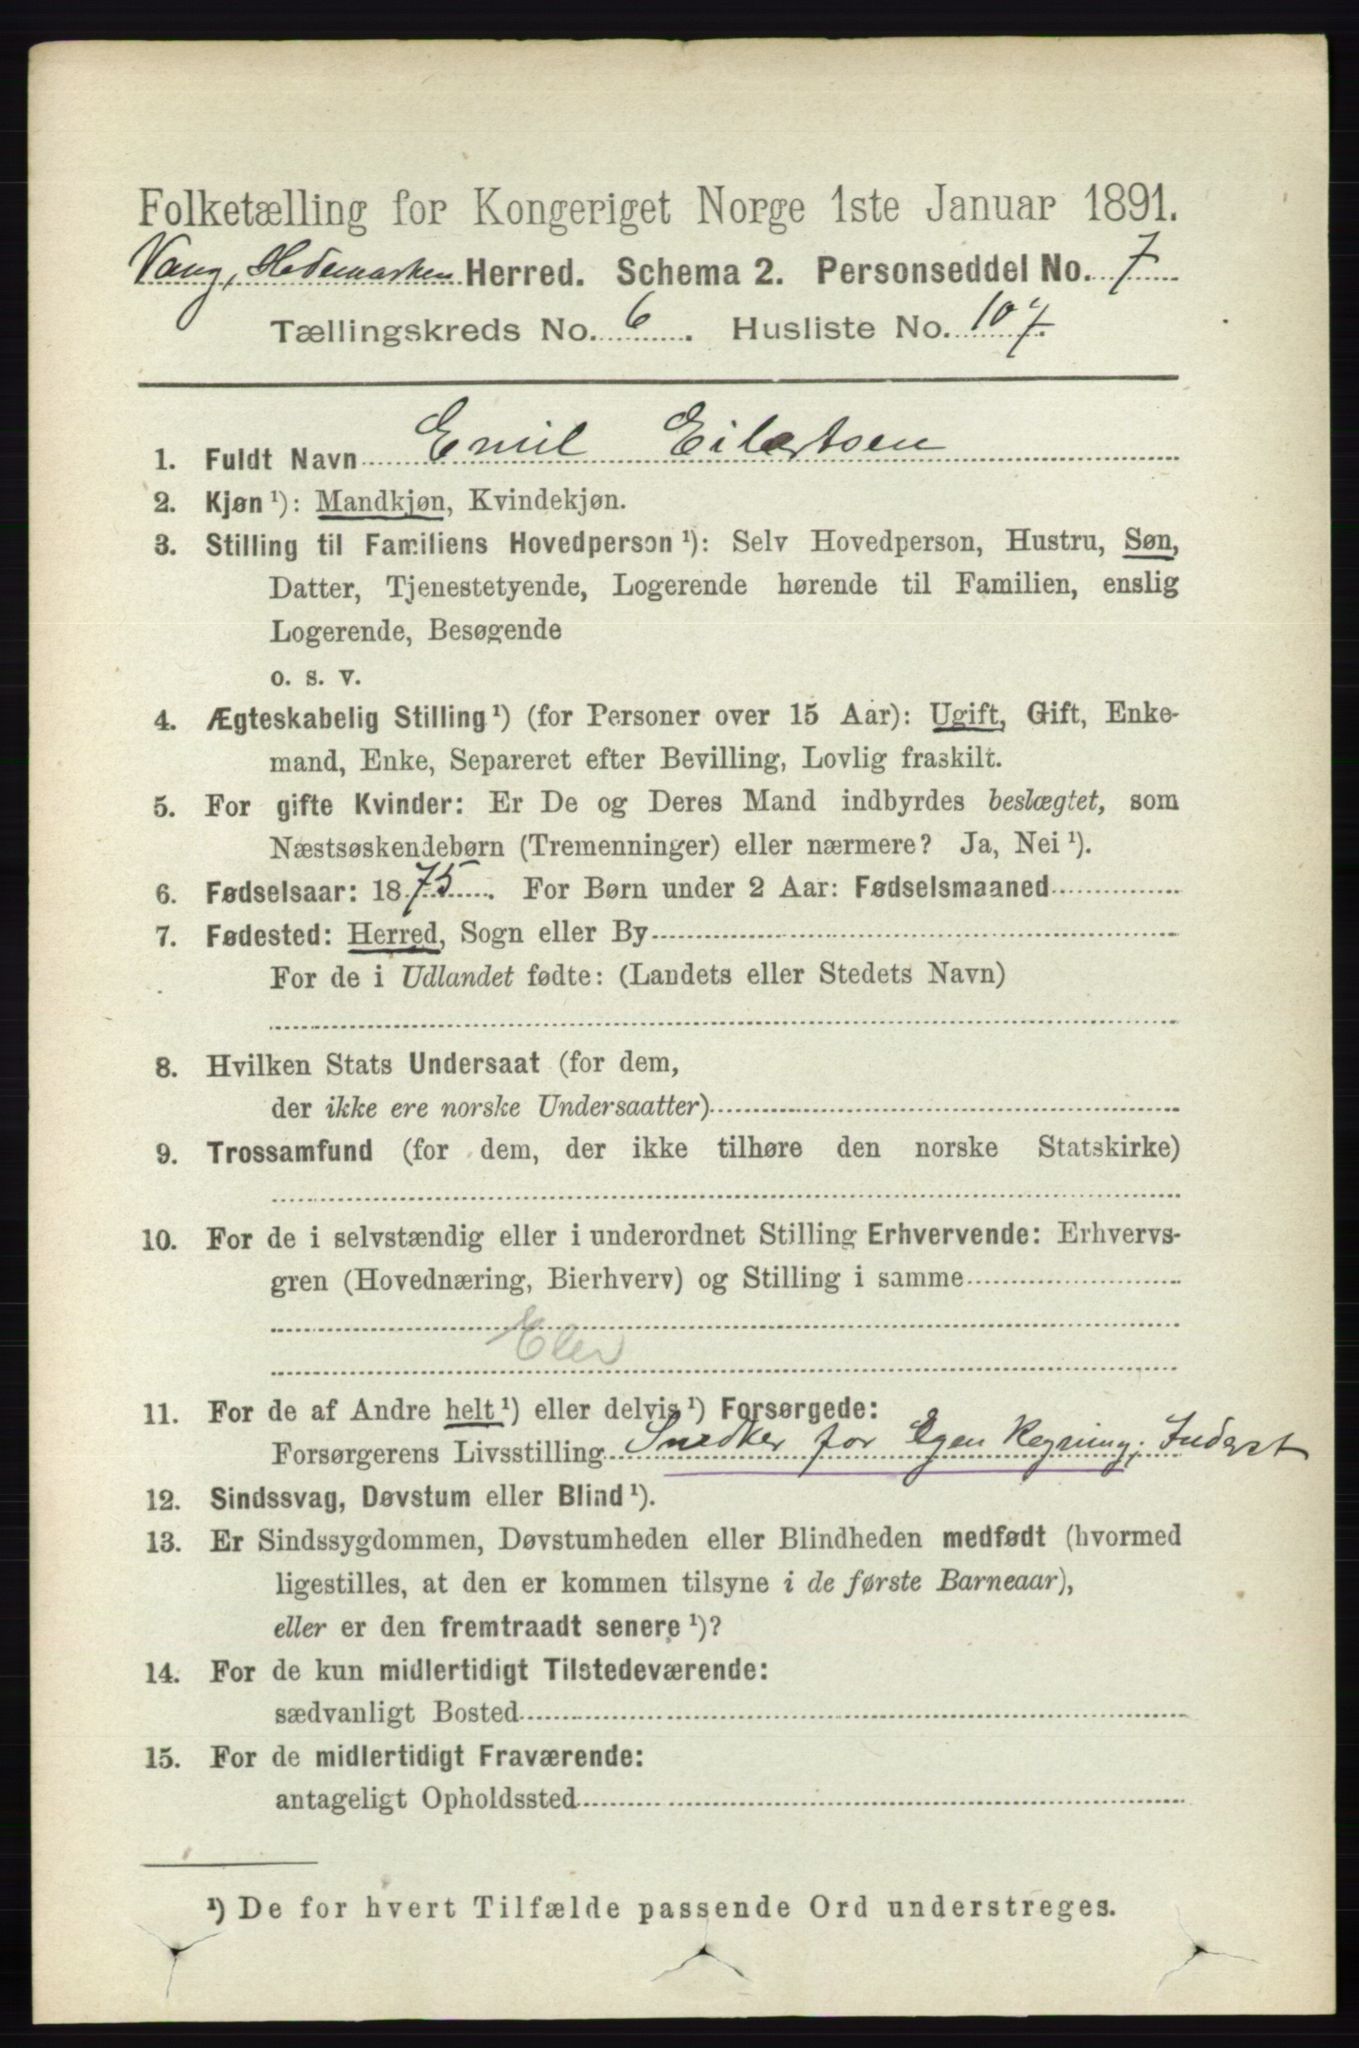 Folketælling for Kongeriget Norge 1ste Januar 1891.
Vang, Hedemarken Herred. Schema 2. Personseddel No. 7
Tællingskreds No. 6. Husliste No. 107.
1. Fuldt Navn Emil Eilertsen
2. Kjøn ¹): Mandkjøn, Kvindekjøn.
3. Stilling til Familiens Hovedperson ¹): Selv Hovedperson, Hustru, Søn,
Datter, Tjenestetyende, Logerende hørende til Familien, enslig
Logerende, Besøgende
o. s. v.
4. Ægteskabelig Stilling ¹) (for Personer over 15 Aar): Ugift, Gift, Enke-
mand, Enke, Separeret efter Bevilling, Lovlig fraskilt.
5. For gifte Kvinder: Er De og Deres Mand indbyrdes beslægtet, som
Næstsøskendebørn (Tremenninger) eller nærmere? Ja, Nei ¹).
6. Fødselsaar: 1875. For Børn under 2 Aar: Fødselsmaaned
7. Fødested: Herred, Sogn eller By
For de i Udlandet fødte: (Landets eller Stedets Navn)
8. Hvilken Stats Undersaat (for dem,
der ikke ere norske Undersaatter)
9. Trossamfund (for dem, der ikke tilhøre den norske Statskirke)
10. For de i selvstændig eller i underordnet Stilling Erhvervende: Erhvervs-
gren (Hovednæring, Bierhverv) og Stilling i samme
Elev
11. For de af Andre helt ¹) eller delvis ¹) Forsørgede:
Forsørgerens Livsstilling Snedker for Egen Regning; Inderst
12. Sindssvag, Døvstum eller Blind ¹).
13. Er Sindssygdommen, Døvstumheden eller Blindheden medfødt (hvormed
ligestilles, at den er kommen tilsyne i de første Barneaar),
eller er den fremtraadt senere ¹)?
14. For de kun midlertidigt Tilstedeværende:
sædvanligt Bosted
15. For de midlertidigt Fraværende:
antageligt Opholdssted
¹) De for hvert Tilfælde passende Ord understreges.